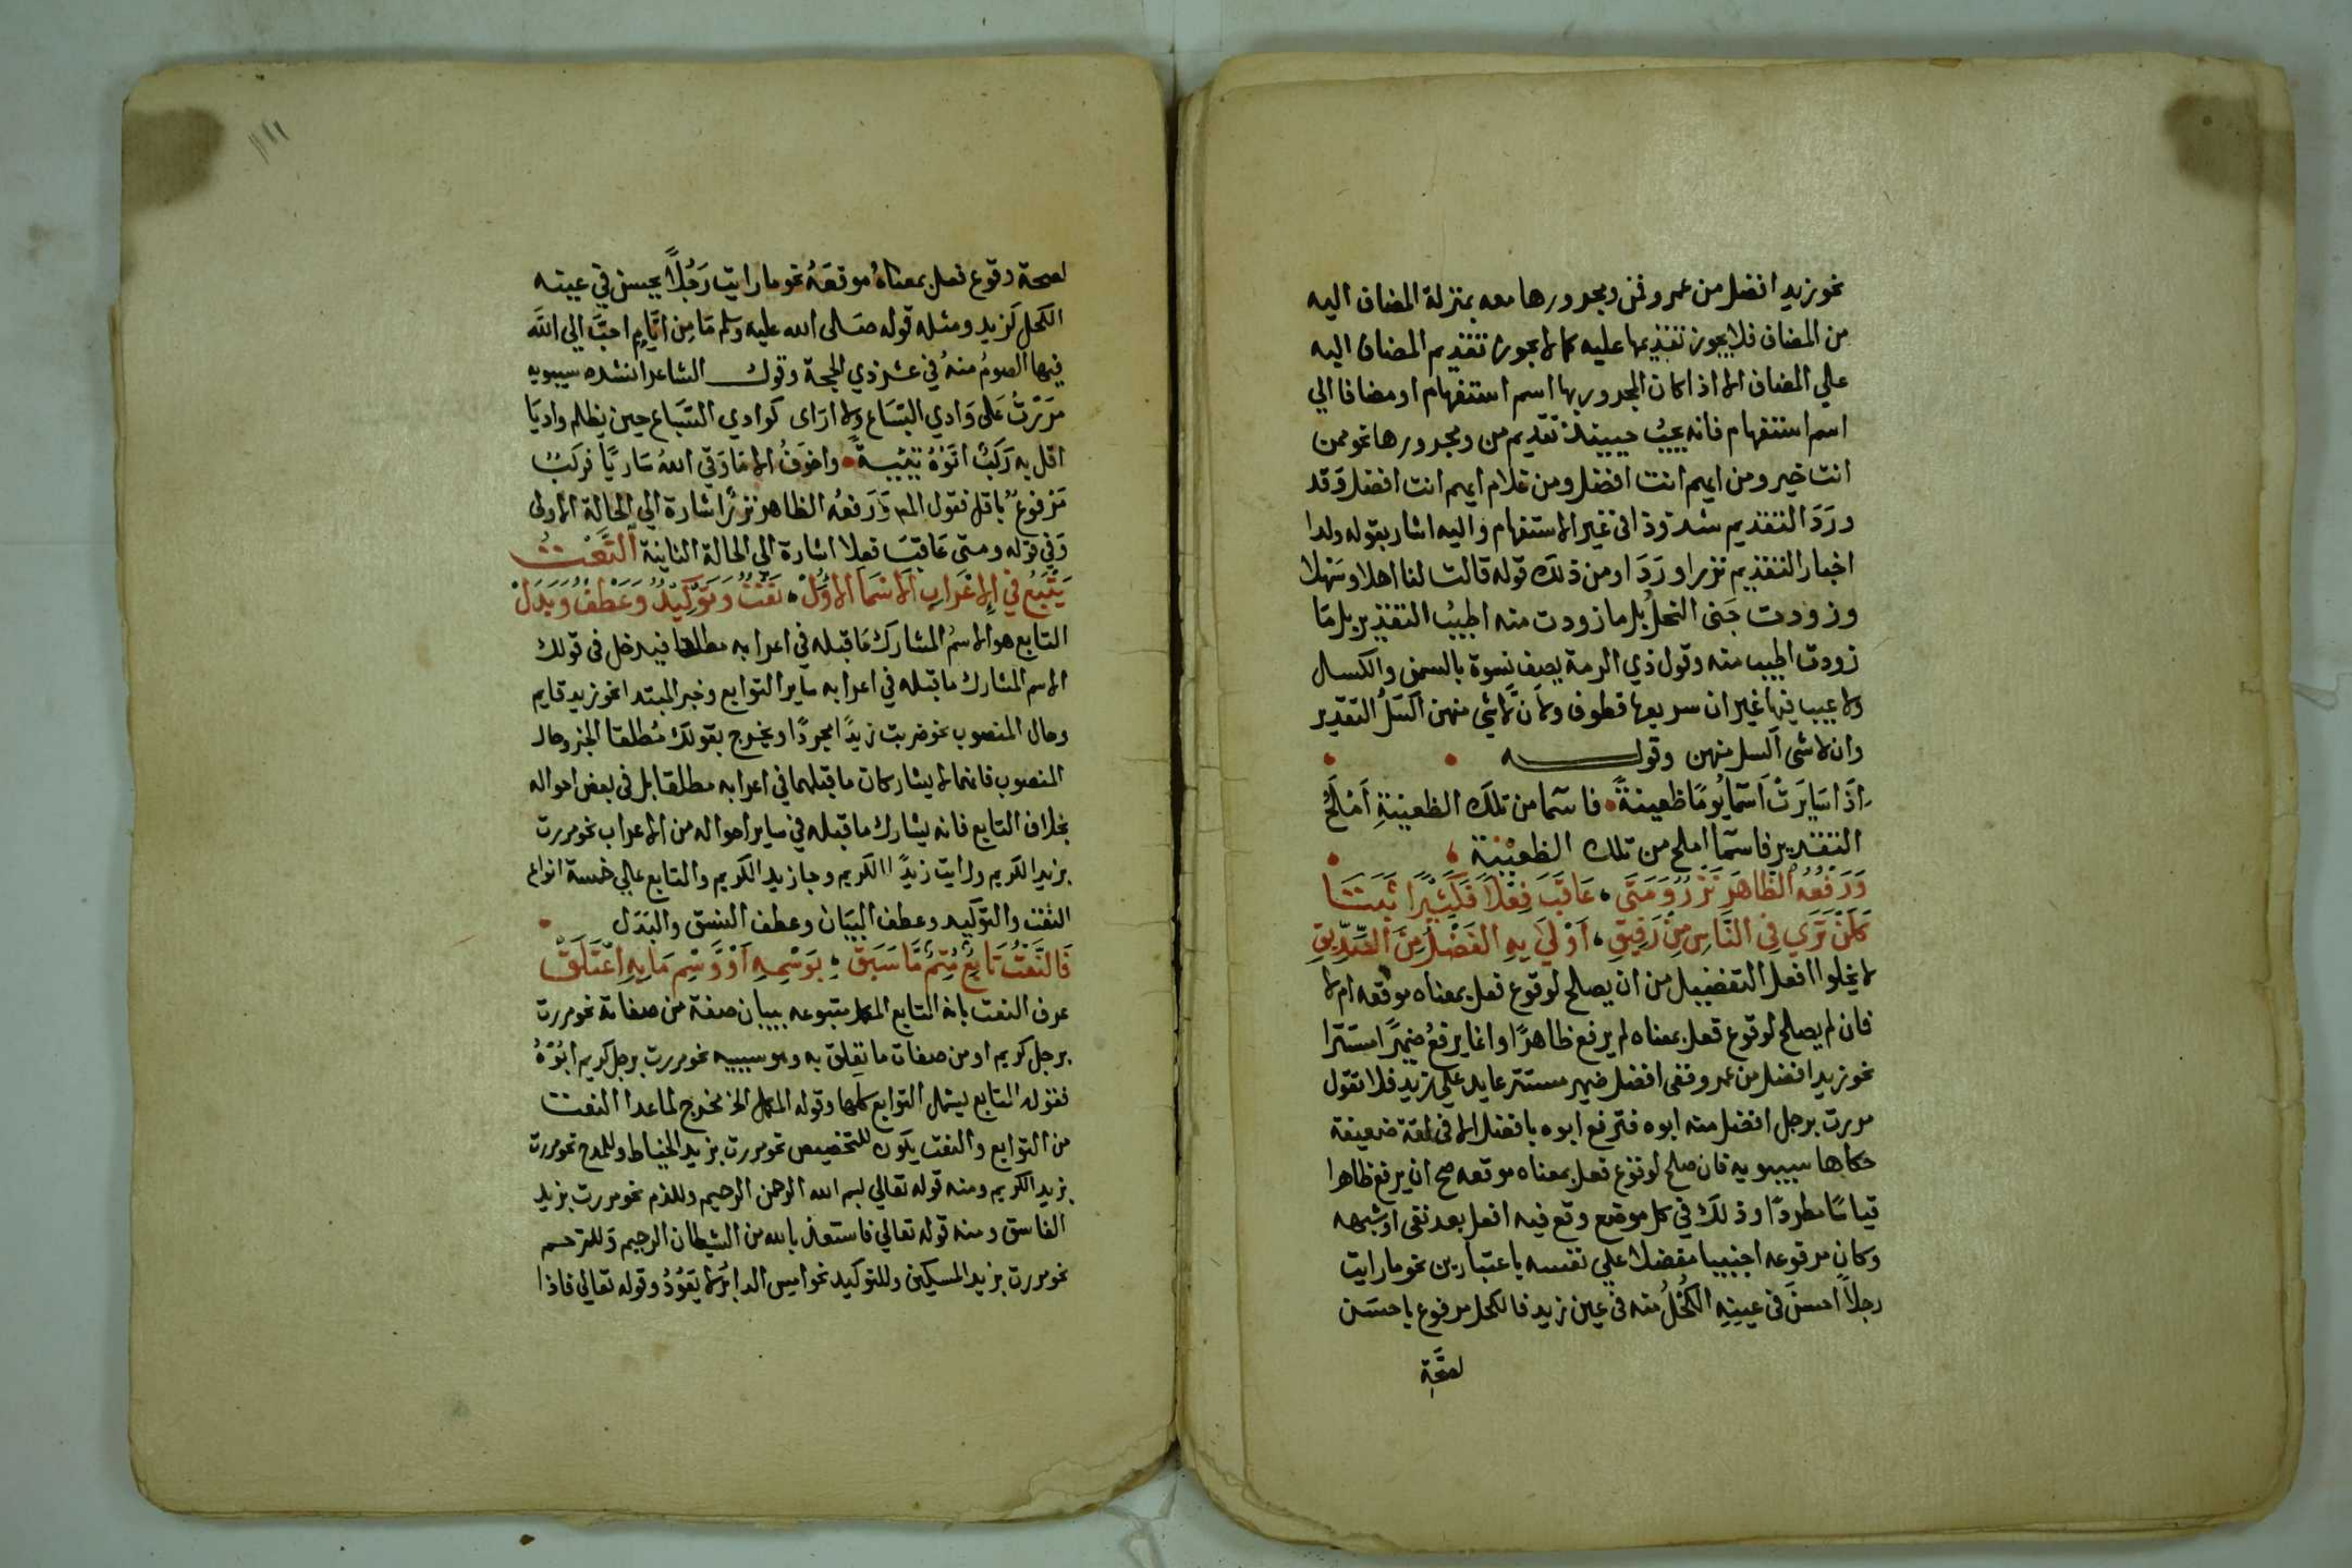 نحو زيد افضل من عمرو فمن ومجرورها معه بمنزلة المضاف اليه
من المضاف فلا يجوز تقديمها عليه كما لا يجوز تقديم المضاف اليه
علي المضاف الا اذا كان المجرور بها اسم استفهام او مضافا الي
اسم استفهام فانه يجب حينئذ تقديم من ومجرورها نحو ممن
انت خير ومن ايهم انت افضل ومن غلام ايهم انت افضل وقد
ورد التقديم شذوذا في غير الاستفهام واليه اشار بقوله ولدا
اخبار التقديم نزرا وردا ومن ذلك قوله قالت لنا اهلا وسهلا
وزودت جنى النحل بل ما زودت منه اطيب التقدير بل ما
زودت اطيب منه وقول ذي الرمة يصف نسوة بالسمن والكسل
ولا عيب فيها غير ان سريعها قطوف وان لا شي منهن اكسل التقدير
وان لا شي اكسل منهن وقوله
اذا سايرت اسما يوما ظعينة فاسما من تلك الظعينة املح
التقدير فاسما املح من تلك الظعينة
ورفعه الظاهر نزر ومتى عاقب فعلا فكثيرا ثبتا
كلن تري في الناس من رفيق اولى به الفضل من الصديق
لا يخلوا افعل التفضيل من ان يصلح لوقوع فعل بمعناه موقعه ام لا
فان لم يصلح لوقوع فعل بمعناه لم يرفع ظاهرا وانما يرفع ضميرا مستترا
نحو زيد افضل من عمرو ففي افضل ضمير مستتر عايد علي زيد فلا تقول
مررت برجل افضل منه ابوه فترفع ابوه بافضل الا في لغة ضعيفة
حكاها سيبويه فان صلح لوقوع فعل بمعناه موقعه صح ان يرفع ظاهرا
قياسا مطردا وذلك في كل موضع وقع فيه افعل بعد نفي او شبهه
وكان مرفوعه اجنبيا مفضلا علي نفسه باعتبارين نحو ما رايت
رجلا احسن في عينه الكحل منه في عين زيد فالكحل مرفوع باحسن
لصحة
لصحة وقوع فعل بمعناه موقعه نحو ما رايت رجلا يحسن في عينه
الكحل كزيد ومثله قوله صلى الله عليه وسلم ما من ايام احب الي الله
فيها الصوم منه في عشر ذي الحجة وقول الشاعر انشده سيبويه
مررت على وادي السباع ولا ارى كوادي السباع حين يظلم واديا
اقل به ركب اتوه تئية واخوف الا ما وقي الله ساريا فركب
مرفوع باقل فقول المص ورفعه الظاهر نزر اشارة الي الحالة الاولى
وفي قوله ومتى عاقب فعلا اشارة الي الحالة الثانية النعت
يتبع في الاعراب الاسما الاول نعت وتوكيد وعطف وبدل
التابع هو الاسم المشارك ما قبله في اعرابه مطلقا فيدخل في قولك
الاسم المشارك ما قبله في اعرابه ساير التوابع وخبر المبتدا نحو زيد قايم
وحال المنصوب نحو ضربت زيدا مجردا ويخرج بقولك مطلقا الخبر وحال
المنصوب فانهما لا يشاركان ما قبلهما في اعرابه مطلقا بل في بعض احواله
بخلاف التابع فانه يشارك ما قبله في ساير احواله من الاعراب نحو مررت
بزيد الكريم ورايت زيدا الكريم وجا زيد الكريم والتابع علي خمسة انواع
النعت والتوكيد وعطف البيان وعطف النسق والبدل
فالنعت تابع متم ما سبق بوسمه او وسم ما به اعتلق
عرف النعت بانه التابع المكمل متبوعه ببيان صفة من صفاته نحو مررت
برجل كريم او من صفات ما تعلق به وهو سببيه نحو مررت برجل كريم ابوه
فقوله التابع يشمل التوابع كلها وقوله المكمل الخ مخرج لما عدا النعت
من التوابع والنعت يكون للتخصيص نحو مررت بزيد الخياط وللمدح نحو مررت
بزيد الكريم ومنه قوله تعالي بسم الله الرحمن الرحيم وللذم نحو مررت بزيد
الفاسق ومنه قوله تعالي فاستعذ بالله من الشيطان الرجيم وللترحم
نحو مررت بزيد المسكين وللتوكيد نحو امس الدابر لا يعود وقوله تعالي فاذا